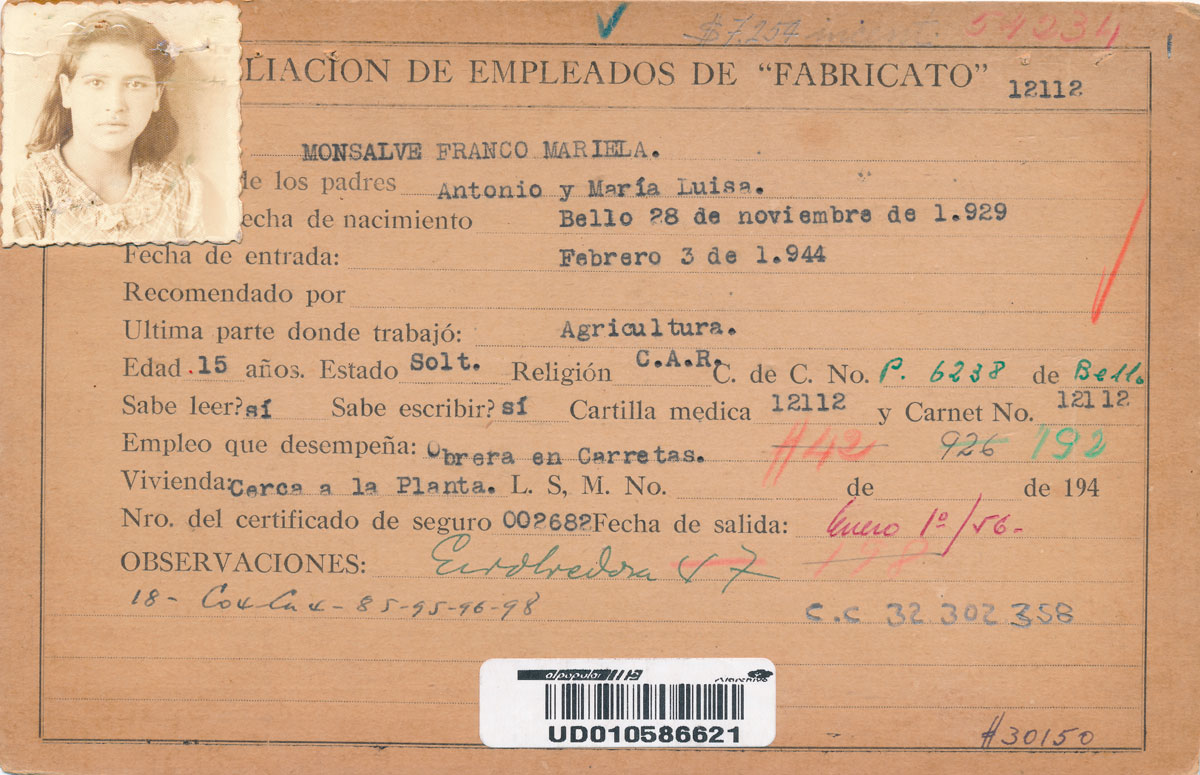 $7.254 54234
LIACION DE EMPLEADOS DE “FABRICATO” 12112
MONSALVE FRANCO MARIELA.
de los padres Antonio y María Luisa.
echa de nacimiento Bello 28 de noviembre de 1.929
Fecha de entrada: Febrero 3 de 1.944
Recomendado por
Ultima parte donde trabajó: Agricultura.
Edad .15 años. Estado Solt. Religión C.A.R. C. de C. No. P. 6238 de Bello
Sabe leer? sí Sabe escribir? sí Cartilla medica 12112 y Carnet No. 12112
Empleo que desempeña: Obrera en Carretas. #42 926 192
Vivienda: Cerca a la Planta. L. S, M. No. de de 194
Nro. del certificado de seguro 002682 Fecha de salida: Enero 1º/56-
OBSERVACIONES: 198
18- 85-95-96-98 C.C 32 302 358
alpopular
UD010586621
#30150